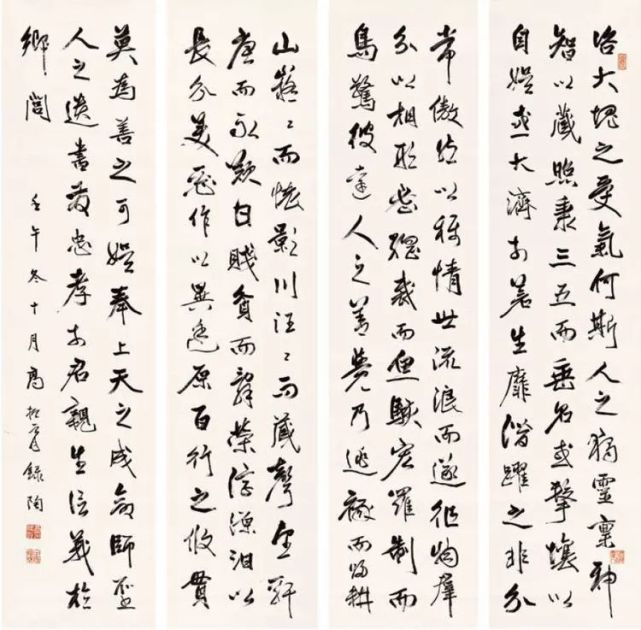 咨大塊之受氣何斯人之獨靈稟神
智以藏照秉三五而垂名或擊壤以
自娛或大濟於蒼生靡潛躍之非分
常傲然以稱情世流浪而遂徂物羣
分以相形密網裁而魚駭宏羅制而
鳥驚彼達人之善覺乃逃祿而歸耕
山嶷〻而懷影川汪〻而藏聲望軒
唐而永歎甘賤貧而辭榮淳源汩以
長分美惡作以異途原百行之攸貴
莫為善之可娛奉上天之成命師聖
人之遺書發忠孝於君親生信義於
鄉閭
壬午冬十月高振霄錄陶